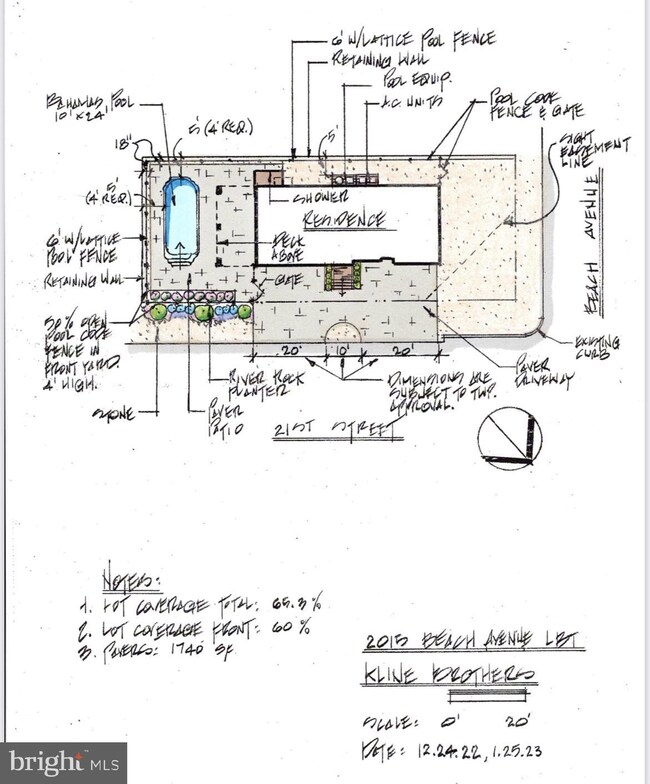 6' W/LATTICE POOL FENCE
RETAINING WALL
POOL EQUIP.
A.C. UNITS
BAHAMAS POOL
10' x 24'
5' (4' REQ.)
18"
5'
POOL CODE
FENCE & GATE
SIGHT
EASEMENT
LINE
5'
(4' REQ.)
SHOWER
RESIDENCE
BEACH AVENUE
6' W/LATTICE
POOL FENCE
DECK
ABOVE
RETAINING WALL
GATE
50% OPEN
POOL CODE
FENCE IN
FRONT YARD.
4' HIGH.
EXISTING
CURB
20' 10' 20'
PAVER
DRIVEWAY
RIVER ROCK
PLANTER
DIMENSIONS ARE
SUBJECT TO TWP.
APPROVAL.
STONE
PAVER
PATIO
21ST STREET
NOTES:
1. LOT COVERAGE TOTAL: 65.3%
2. LOT COVERAGE FRONT: 60%
3. PAVERS: 1740 SF
2015 BEACH AVENUE LBT
KLINE BROTHERS
SCALE: 0' 20'
DATE: 12.24.22, 1.25.23
bright MLS